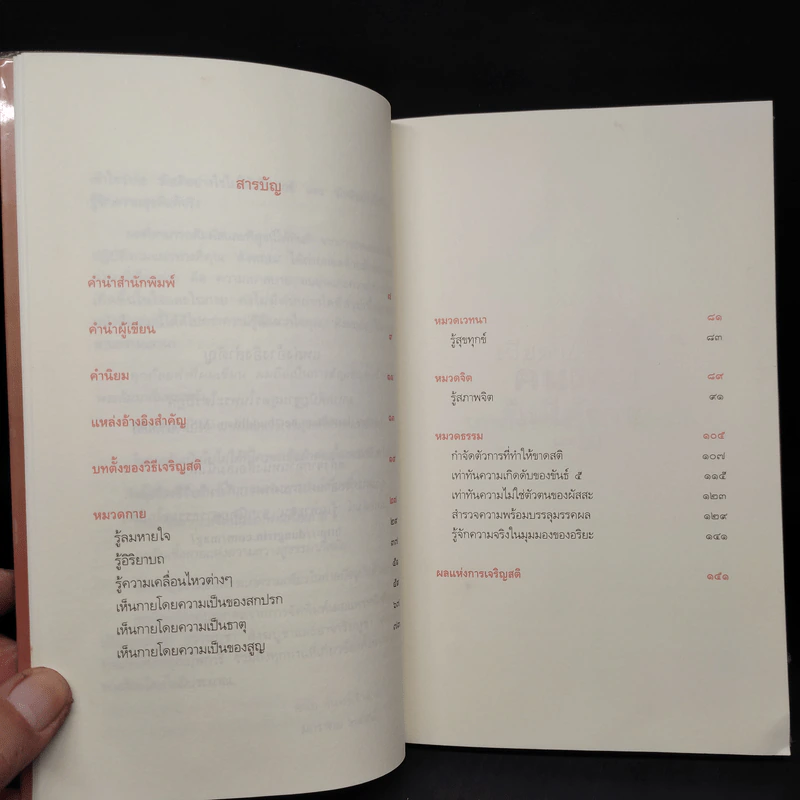 สารบัญ
คำนำสำนักพิมพ์
คำนำผู้เขียน
คำนิยม
แหล่งอ้างอิงสำคัญ
บทตั้งของวิธีเจริญสติ
หมวดกาย
รู้ลมหายใจ
รู้อิริยาบถ
รู้ความเคลื่อนไหวต่างๆ
เห็นกายโดยความเป็นของสกปรก
เห็นกายโดยความเป็นธาตุ
เห็นกายโดยความเป็นของสูญ
หมวดเวทนา ๘๑
รู้สุขทุกข์ ๘๓
หมวดจิต ๘๙
รู้สภาพจิต ๙๑
หมวดธรรม ๑๐๕
กำจัดตัวการที่ทำให้ขาดสติ ๑๐๗
เท่าทันความเกิดดับของขันธ์ ๕ ๑๑๕
เท่าทันความไม่ใช่ตัวตนของผัสสะ ๑๒๓
สำรวจความพร้อมบรรลุมรรคผล ๑๒๙
รู้จักความจริงในมุมมองของอริยะ ๑๔๑
ผลแห่งการเจริญสติ ๑๕๑